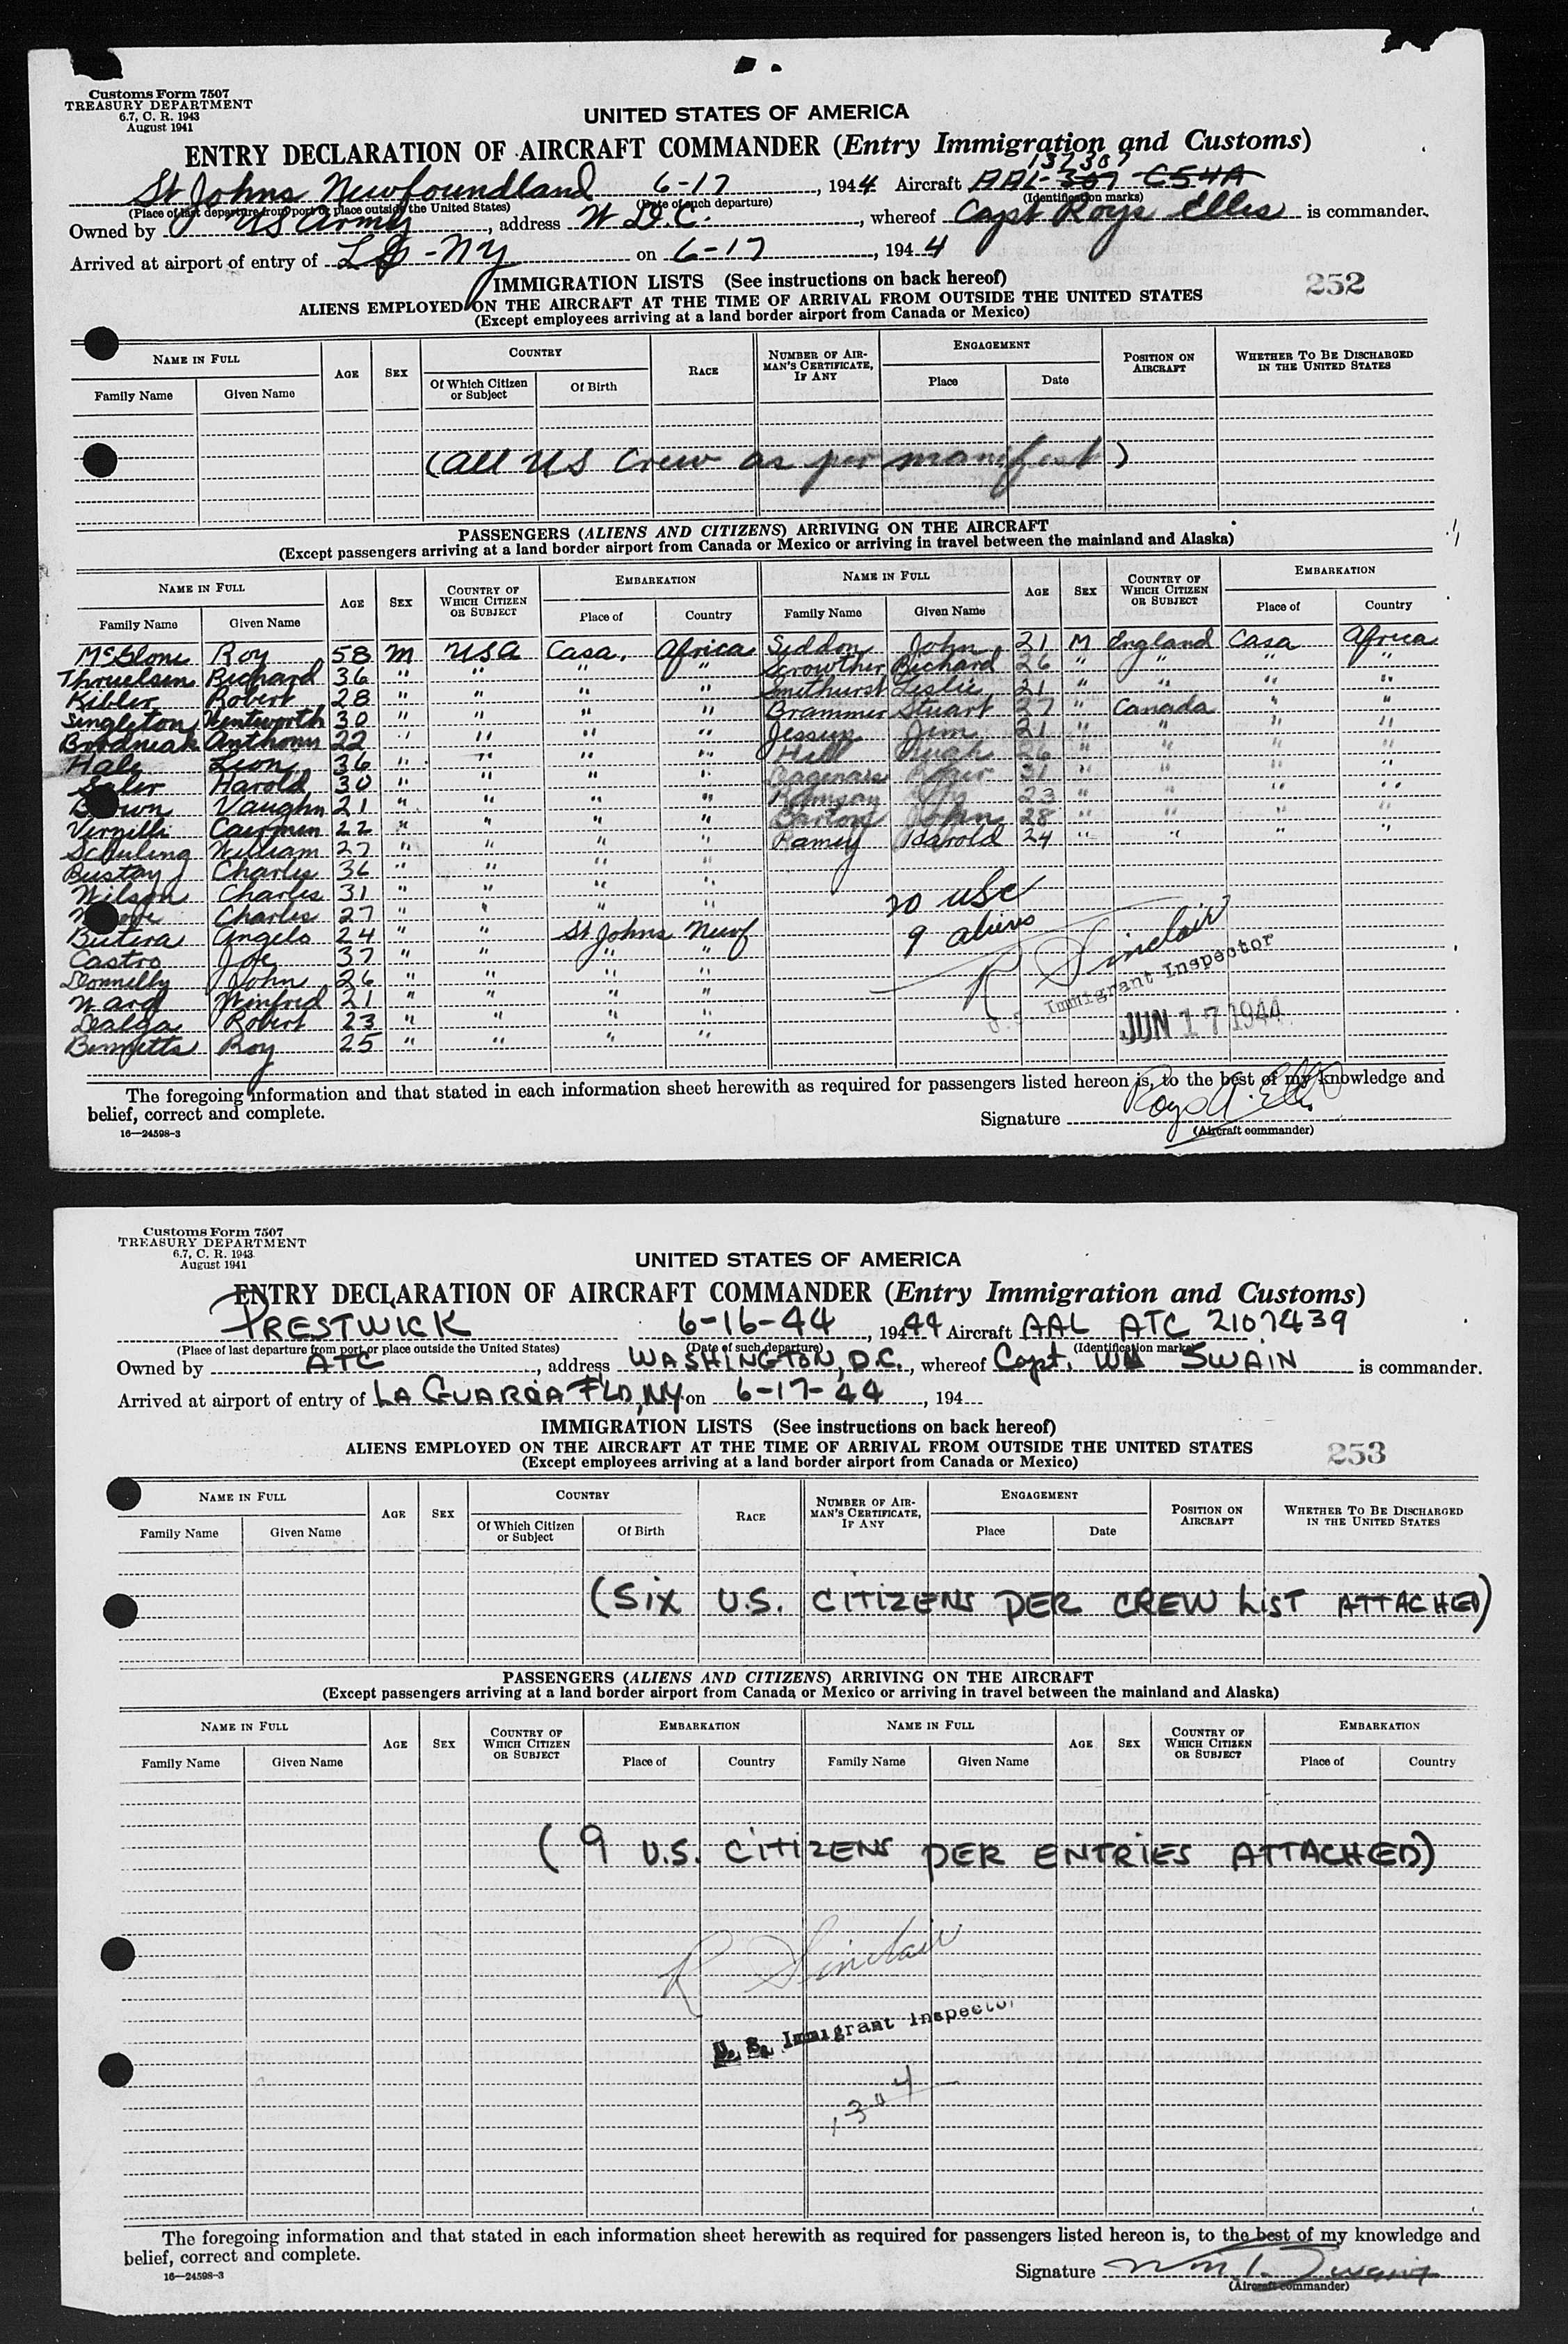 Customs Form 7507
TREASURY DEPARTMENT
6.7, C. R. 1943
August 1941
UNITED STATES OF AMERICA
ENTRY DECLARATION OF AIRCRAFT COMMANDER (Entry Immigration and Customs)
137307
St Johns Newfoundland 6-17, 1944 Aircraft AAL-307 C54A
(Place of last departure from port or place outside the United States) (Date of such departure) (Identification marks)
Owned by US Army, address W D.C., whereof Capt Roys Ellis is commander.
Arrived at airport of entry of LG-NY on 6-17, 1944
IMMIGRATION LISTS (See instructions on back hereof)
252
ALIENS EMPLOYED ON THE AIRCRAFT AT THE TIME OF ARRIVAL FROM OUTSIDE THE UNITED STATES
(Except employees arriving at a land border airport from Canada or Mexico)
NAME IN FULL AGE SEX COUNTRY RACE NUMBER OF AIRMAN'S CERTIFICATE, IF ANY ENGAGEMENT POSITION ON AIRCRAFT WHETHER TO BE DISCHARGED IN THE UNITED STATES
Family Name Given Name Of Which Citizen or Subject Of Birth Place Date
(all US Crew as per manifest)
PASSENGERS (ALIENS AND CITIZENS) ARRIVING ON THE AIRCRAFT
(Except passengers arriving at a land border airport from Canada or Mexico or arriving in travel between the mainland and Alaska)
NAME IN FULL AGE SEX COUNTRY OF WHICH CITIZEN OR SUBJECT EMBARKATION NAME IN FULL AGE SEX COUNTRY OF WHICH CITIZEN OR SUBJECT EMBARKATION
Family Name Given Name Place of Country Family Name Given Name Place of Country
McGlone Roy 58 M USA Casa. Africa Siddon John 21 M England Casa Africa
Thruelsen Richard 36 " " " " Scrowther Richard 26 " " " "
Kibler Robert 28 " " " " Smithurst Leslie 21 " " " "
Singleton Wentworth 30 " " " " Brammer Stuart 27 " Canada " "
Brodniak Anthony 22 " " " " Jessup Jim 21 " " " "
Hale Leon 36 " " " " Hill Hugh 26 " " " "
Harold 30 " " " " 31 " " " "
Brown Vaughn 21 " " " " Ramsay 23 " " " "
Virgilli Carmen 22 " " " " Barton John 28 " " " "
Schuling William 27 " " " " Ramey Harold 24 " " " "
Bustay Charles 36 " " " "
Wilson Charles 31 " " " "
Charles 27 " " " "
Butera Angelo 24 " " St Johns Newf
Castro Joe 37 " " " "
Donnelly John 26 " " " "
Ward Winfred 21 " " " "
Dealga Robert 23 " " " "
Bennetts Roy 25 " " " "
20 USC
9 aliens
R Sinclair
U.S. Immigrant Inspector
JUN 17 1944
The foregoing information and that stated in each information sheet herewith as required for passengers listed hereon is, to the best of my knowledge and
belief, correct and complete.
Signature Roys A. Ellis
(Aircraft commander)
16—24598-3
Customs Form 7507
TREASURY DEPARTMENT
6.7, C. R. 1943
August 1941
UNITED STATES OF AMERICA
ENTRY DECLARATION OF AIRCRAFT COMMANDER (Entry Immigration and Customs)
PRESTWICK 6-16-44, 19444 Aircraft AAL ATC 2107439
(Place of last departure from port or place outside the United States) (Date of such departure) (Identification marks)
Owned by ATC, address WASHINGTON, D.C., whereof Capt. WM SWAIN is commander.
Arrived at airport of entry of LA GUARDIA FLD, NY on 6-17-44, 194
IMMIGRATION LISTS (See instructions on back hereof)
253
ALIENS EMPLOYED ON THE AIRCRAFT AT THE TIME OF ARRIVAL FROM OUTSIDE THE UNITED STATES
(Except employees arriving at a land border airport from Canada or Mexico)
NAME IN FULL AGE SEX COUNTRY RACE NUMBER OF AIRMAN'S CERTIFICATE, IF ANY ENGAGEMENT POSITION ON AIRCRAFT WHETHER TO BE DISCHARGED IN THE UNITED STATES
Family Name Given Name Of Which Citizen or Subject Of Birth Place Date
(SIX U.S. CITIZENS PER CREW LIST ATTACHED)
PASSENGERS (ALIENS AND CITIZENS) ARRIVING ON THE AIRCRAFT
(Except passengers arriving at a land border airport from Canada or Mexico or arriving in travel between the mainland and Alaska)
NAME IN FULL AGE SEX COUNTRY OF WHICH CITIZEN OR SUBJECT EMBARKATION NAME IN FULL AGE SEX COUNTRY OF WHICH CITIZEN OR SUBJECT EMBARKATION
Family Name Given Name Place of Country Family Name Given Name Place of Country
(9 U.S. CITIZENS PER ENTRIES ATTACHED)
R Sinclair
U. S. Immigrant Inspector
The foregoing information and that stated in each information sheet herewith as required for passengers listed hereon is, to the best of my knowledge and
belief, correct and complete.
Signature Wm. I. Swain
(Aircraft commander)
16—24598-3